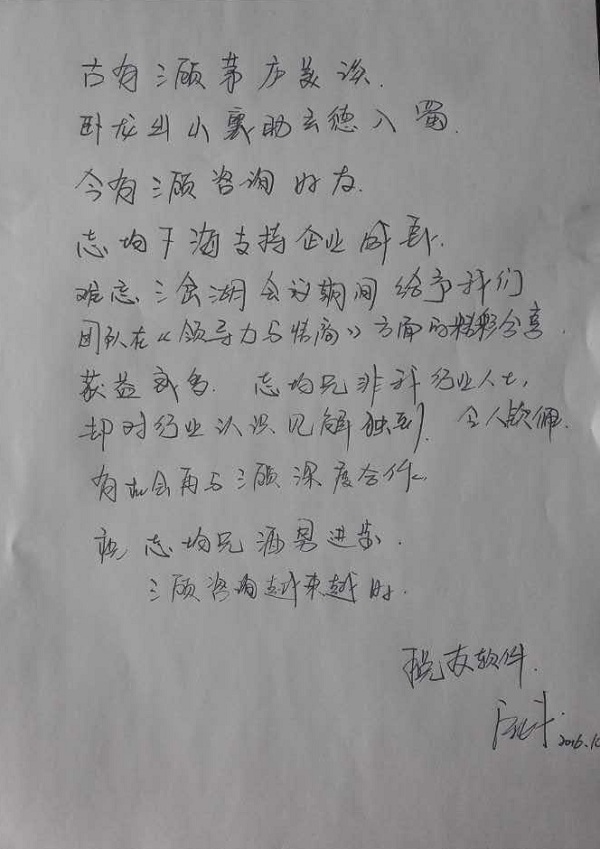 古有三顾茅庐美谈.
卧龙出山襄助玄德入蜀.
今有三顾咨询好友.
志均下海支持企业成长.
难忘三会湖会议期间给予我们
团队在《领导力与情商》方面的精彩分享.
获益或多. 志均兄非我行业人士,
却对行业认识见解独到, 令人钦佩.
有机会再与三顾深度合作.
祝 志均兄酒男进步.
三顾咨询越来越好.
税友软件.
2016.10